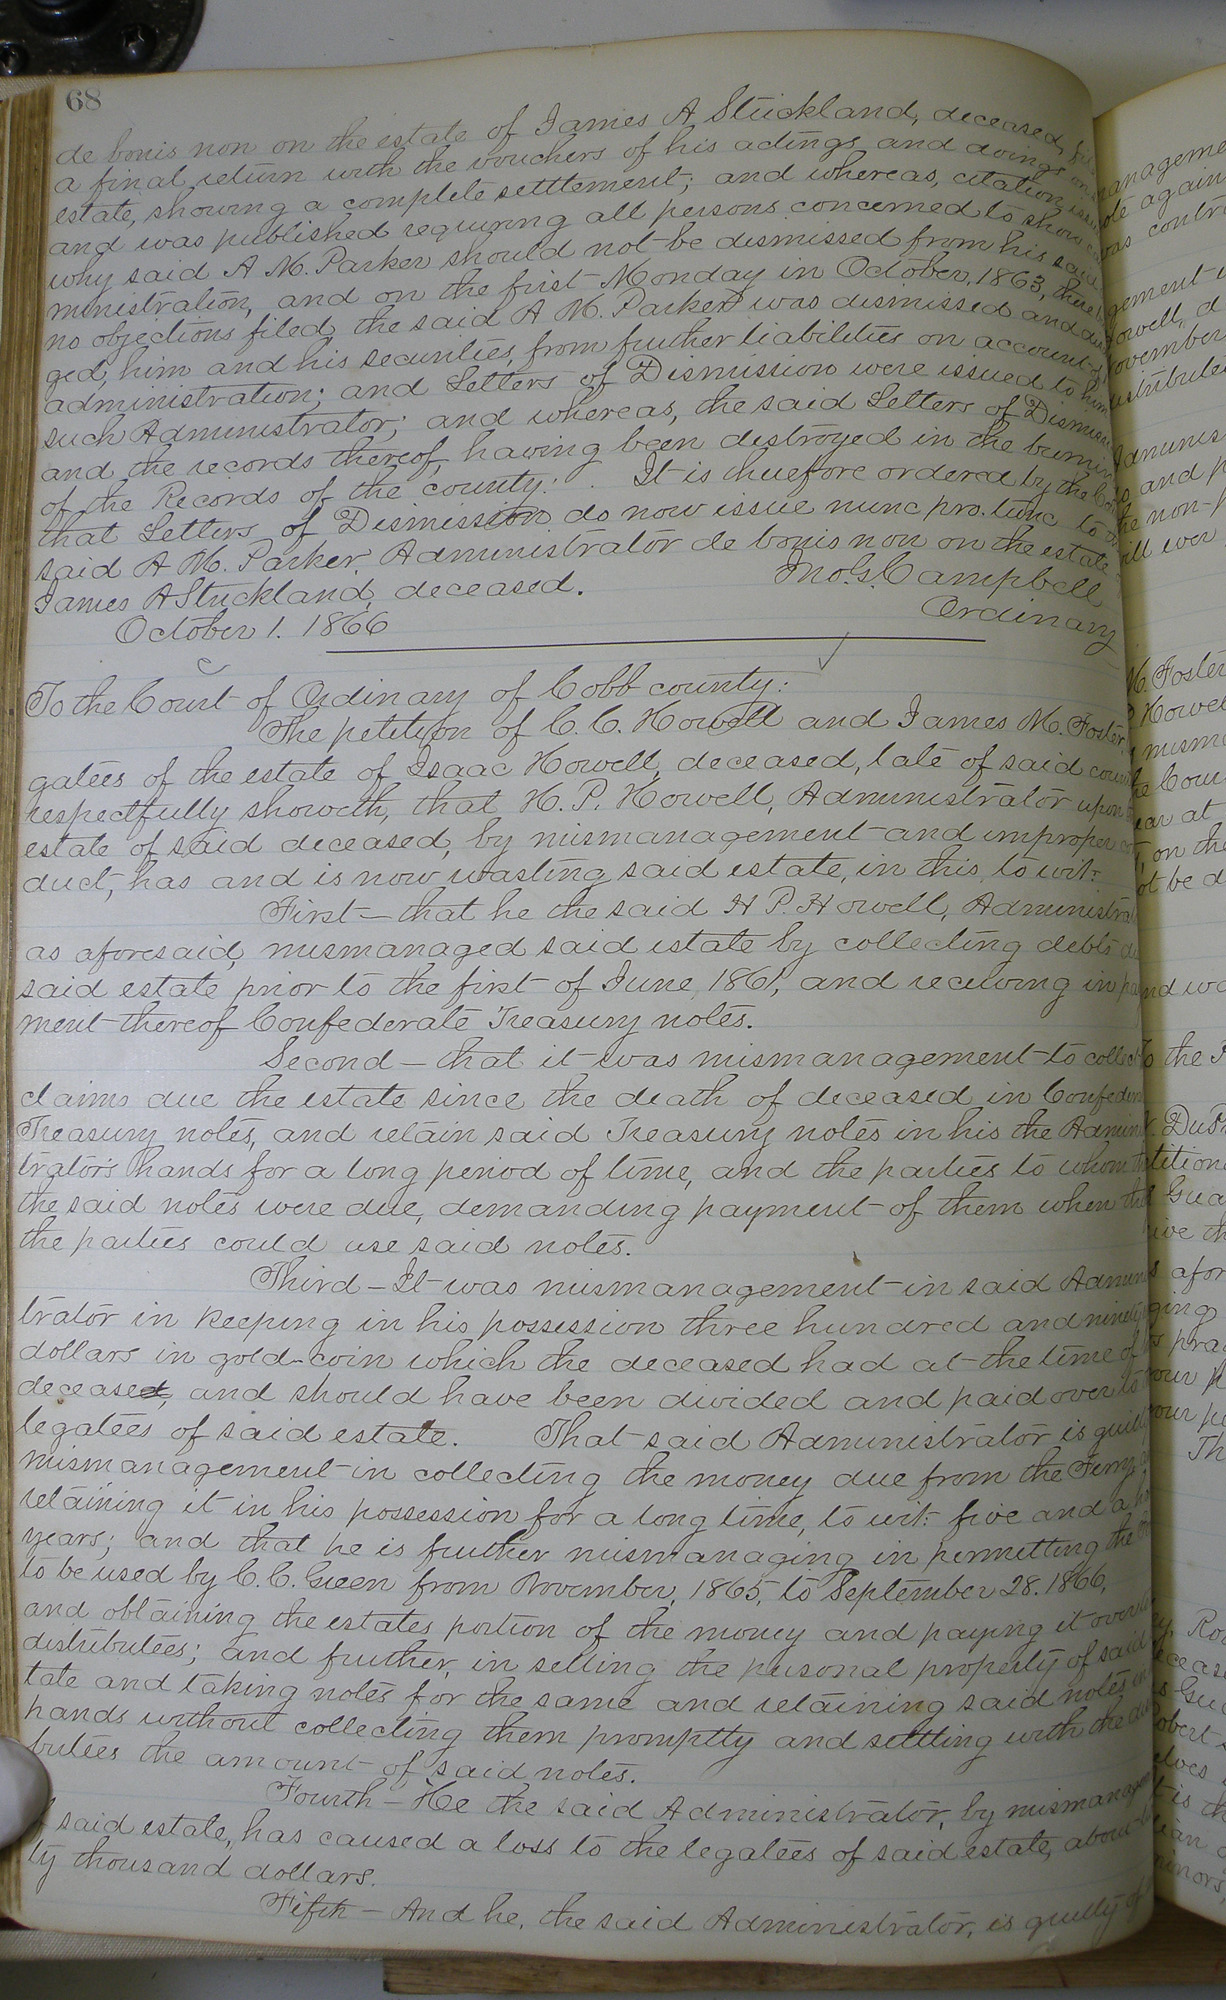 68
de bonis non on the estate of James A Strickland, deceased,
a final return with the vouchers of his actings and doings
estate, showing a complete settlement; and whereas, citation
and was published requiring all persons concerned to show
why said A M. Parker should not be dismissed from his said
ministration, and on the first Monday in October, 1863, there
no objections filed, the said A M. Parker was dismissed and
ged, him and his securities, from further liabilities on account
administration; and Letters of Dismission were issued to him
such Administrator; and whereas, the said Letters of
and the records thereof, having been destroyed in the
of the Records of the county: . It is therefore ordered by the
that Letters of Dismission do now issue nunc pro. tunc to
said A M. Parker, Administrator de bonis non on the estate
James A Strickland, deceased. Jno. G. Campbell
October 1. 1866 Ordinary
To the Court of Ordinary of Cobb county:
The petition of C. C. Howell and James M. Foster,
gatees of the estate of Isaac Howell, deceased, late of said
respectfully showeth, that H. P. Howell, Administrator upon
estate of said deceased, by mismanagement and improper
duct, has and is now wasting said estate, in this, to wit:
First— that he the said H P. Howell,
as aforesaid, mismanaged said estate by collecting debts
said estate prior to the first of June, 1861, and receiving in
ment thereof Confederate Treasury notes.
Second— that it was mismanagement to collect
claims due the estate since the death of deceased in
Treasury notes, and retain said Treasury notes in his the
trator's hands for a long period of time, and the parties to whom
the said notes were due, demanding payment of them when
the parties could use said notes.
Third— It was mismanagement in said
trator in keeping in his possession three hundred and
dollars in gold coin which the deceased had at the time of
deceased, and should have been divided and paid over to
legatees of said estate. That said Administrator is
mismanagement in collecting the money due from the
retaining it in his possession for a long time, to wit: five and a
years; and that he is further mismanaging in permitting the
to be used by C. C. Green from November, 1865, to September 28. 1866,
and obtaining the estates portion of the money and paying it over
distributees; and further, in selling the personal property of said
tate and taking notes for the same and retaining said notes
hands without collecting them promptly and settling with the
butees the amount of said notes.
Fourth— He the said Administrator, by
said estate, has caused a loss to the legatees of said estate, about
ty thousand dollars.
Fifth— And he, the said Administrator, is guilty of